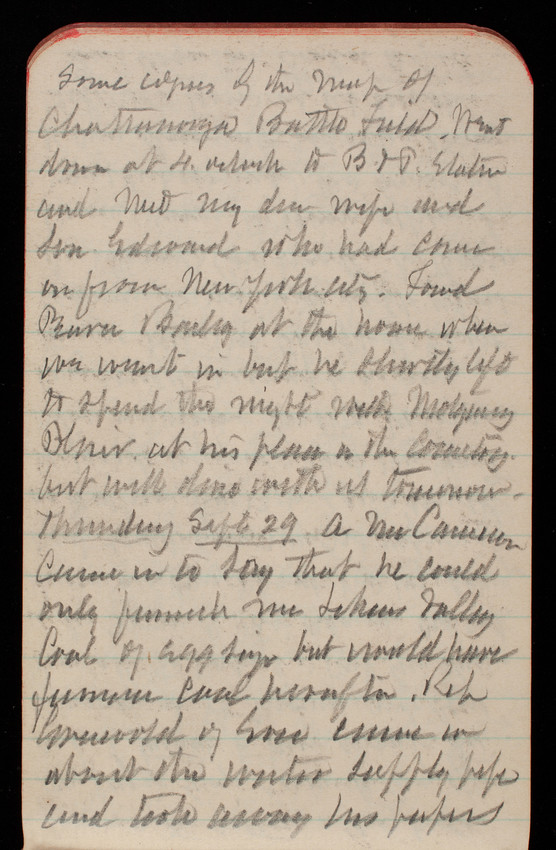 Some copies of the map of
Chattanooga Battle Field. Went
down at 4 o'clock to B & P. Station
and met my dear wife and
Son Edward who had come
in from New York city. Found
Bailey at the house when
we went in but he shortly left
to spend the night with Montgomery
Blair at his place in the Country
but will dine with us tomorrow.
Thursday Sept 29 A Mr Cameron
came in to say that he could
only furnish me Lykens Valley
Coal of egg size but would have
furnace coal hereafter. Rep
Griswold of came in
about the water supply pipe
and took away his papers